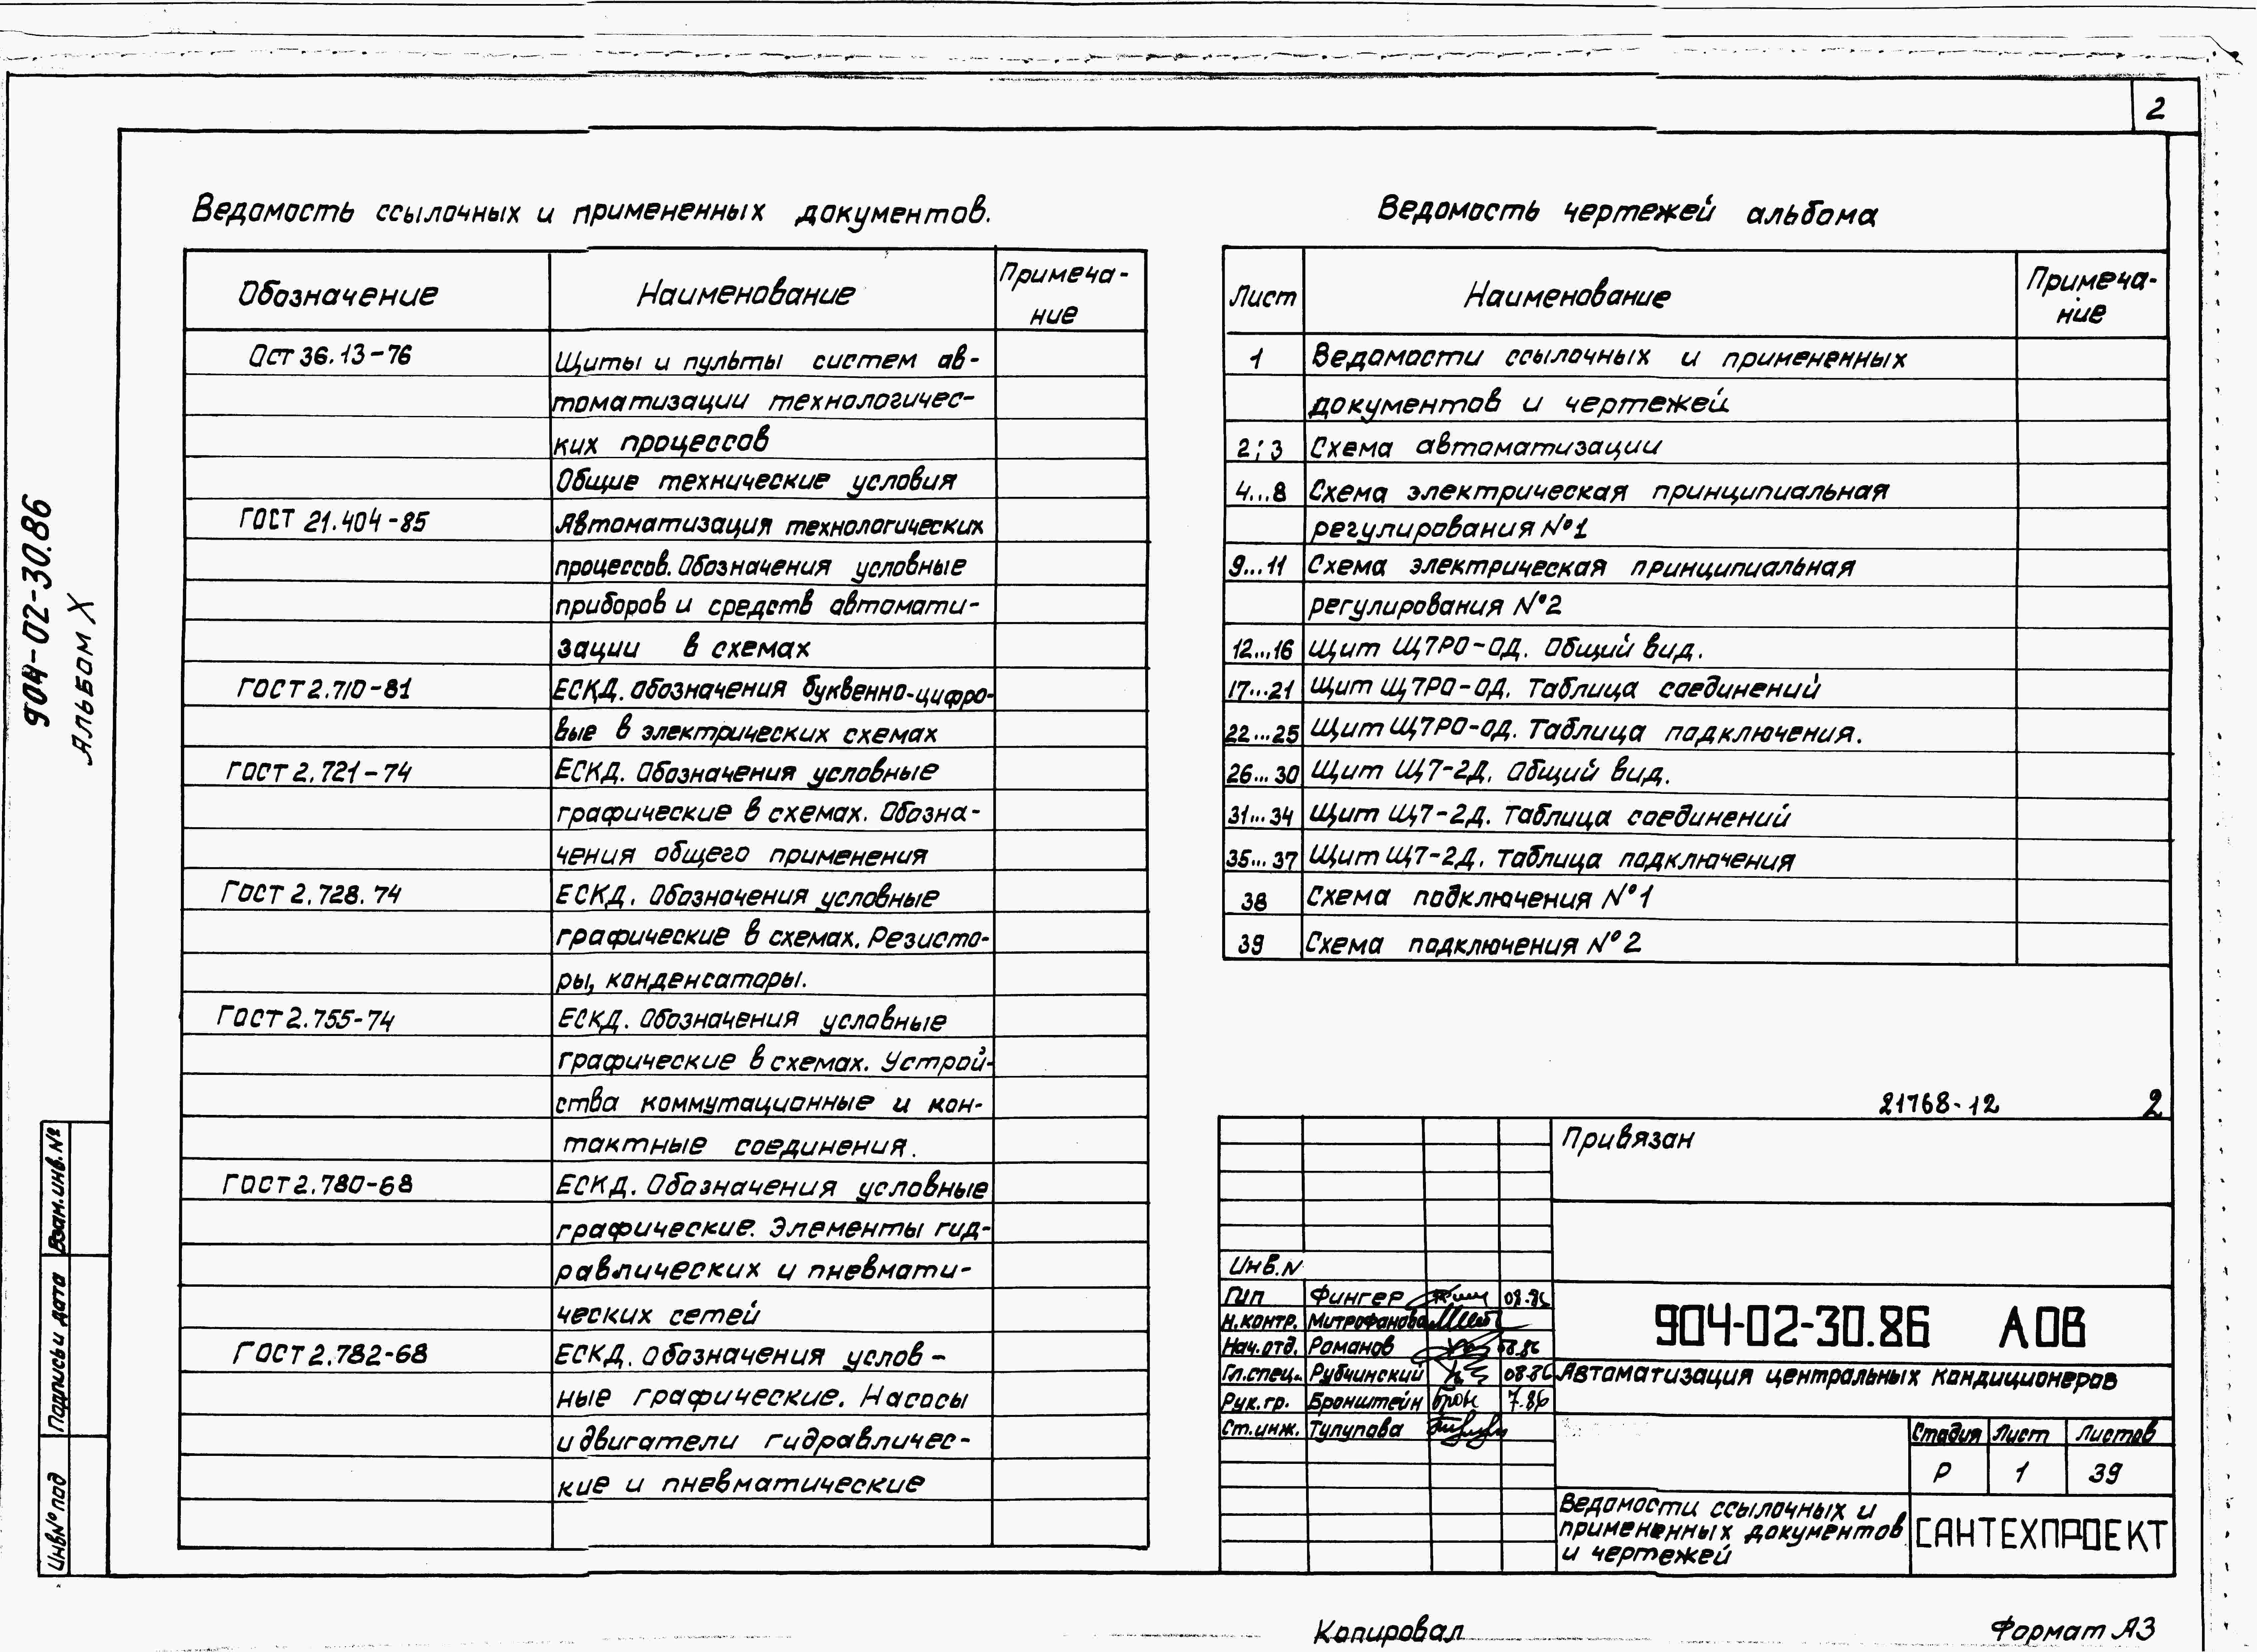 2
904-02-30.86
Альбом X
Ведомость ссылочных и примененных документов.
Обозначение Наименование Примеча-
ние
Ост 36.13-76 Щиты и пульты систем ав-
томатизации технологичес-
ких процессов
Общие технические условия
ГОСТ 21.404-85 Автоматизация технологических
процессов. Обозначения условные
приборов и средств автомати-
зации в схемах
ГОСТ 2.710-81 ЕСКД. Обозначения буквенно-цифро-
вые в электрических схемах
ГОСТ 2.721-74 ЕСКД. Обозначения условные
графические в схемах. Обозна-
чения общего применения
Гост 2.728.74 ЕСКД. Обозначения условные
графические в схемах. Резисто-
ры, конденсаторы.
Гост 2.755-74 ЕСКД. Обозначения условные
графические в схемах. Устрой-
ства коммутационные и кон-
тактные соединения.
Гост 2.780-68 ЕСКД. Обозначения условные
графические. Элементы гид-
равлических и пневмати-
ческих сетей
Гост 2.782-68 ЕСКД. Обозначения услов-
ные графические. Насосы
и двигатели гидравличес-
кие и пневматические
Ведомость чертежей альбома
Лист Наименование Примеча-
ние
1 Ведомости ссылочных и примененных
документов и чертежей
2; 3 Схема автоматизации
4...8 Схема электрическая принципиальная
регулирования №1
9...11 Схема электрическая принципиальная
регулирования №2
12...16 Щит Щ7РО-ОД. Общий вид.
17...21 Щит Щ7РО-ОД. Таблица соединений
22...25 Щит Щ7РО-ОД. Таблица подключения.
26...30 Щит Щ7-2Д. Общий вид.
31...34 Щит Щ7-2Д. Таблица соединений
35...37 Щит Щ7-2Д. Таблица подключения
38 Схема подключения №1
39 Схема подключения №2
21768-12 2
Привязан
Инв.N
ГИП Фингер 08.86
Н.контр. Митрофанова
Нач.отд. Романов 08.86
Гл.спец. Рубчинский 08.86
Рук.гр. Бронштейн Брон 7.86
Ст.инж. Тулупова
904-02-30.86 АОВ
Автоматизация центральных кондиционеров
Стадия Лист Листов
Р 1 39
Ведомости ссылочных и
примененных документов
и чертежей
САНТЕХПРОЕКТ
Взам.инв.№
Подпись и дата
Инв№ под
Копировал
Формат А3